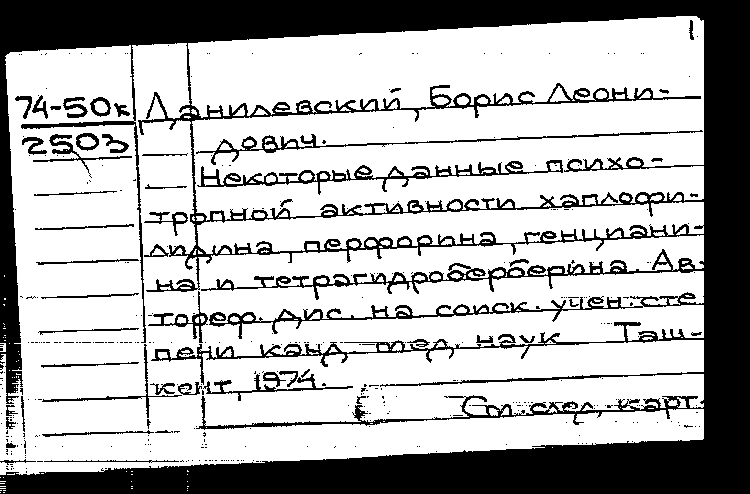 1
74-50к Данилевский, Борис Леони-
2503 дович.
Некоторые данные психо-
тропной активности хаплофи-
лидина, перфорина, генциани-
на и тетрагидроберберина. Ав-
тореф. дис. на соиск. учен. сте
пени канд. мед. наук Таш-
кент, 1974.
См. след. карт.